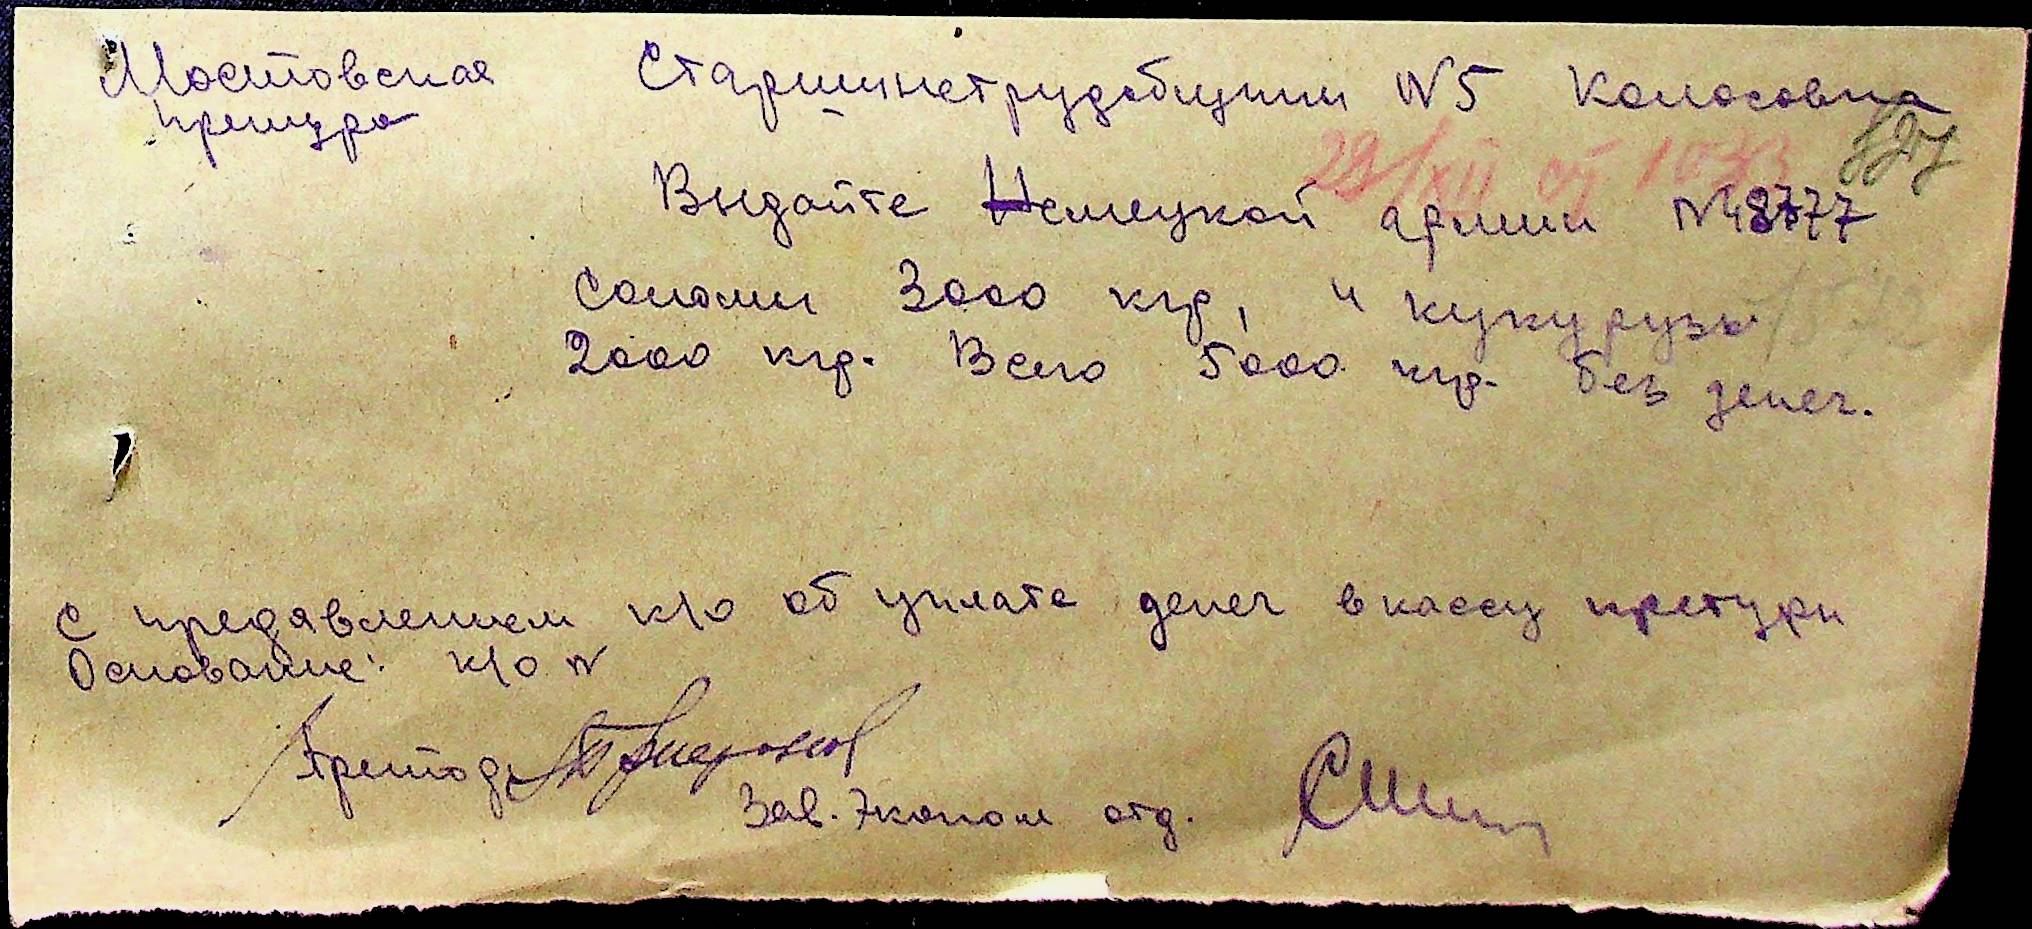 Мостовская
претура
Старшине трудобщини №5 Колосовка
28/XII
Выдайте Немецкой армии №48777
Соломи 3000 кгр, и кукурузы
2000 кгр. Всего 5000 кгр. без денег.
С предявлением к/о об уплате денег в кассу претури
Основание: к/о №
Претор
Зав. Эконом отд.